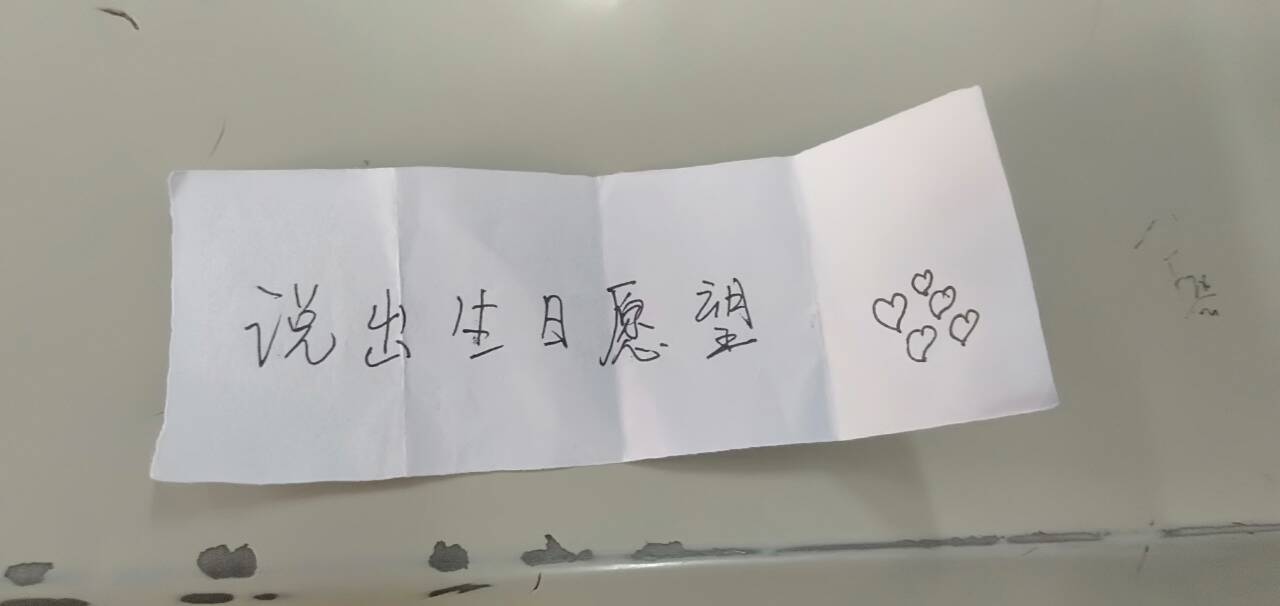 说出生日愿望